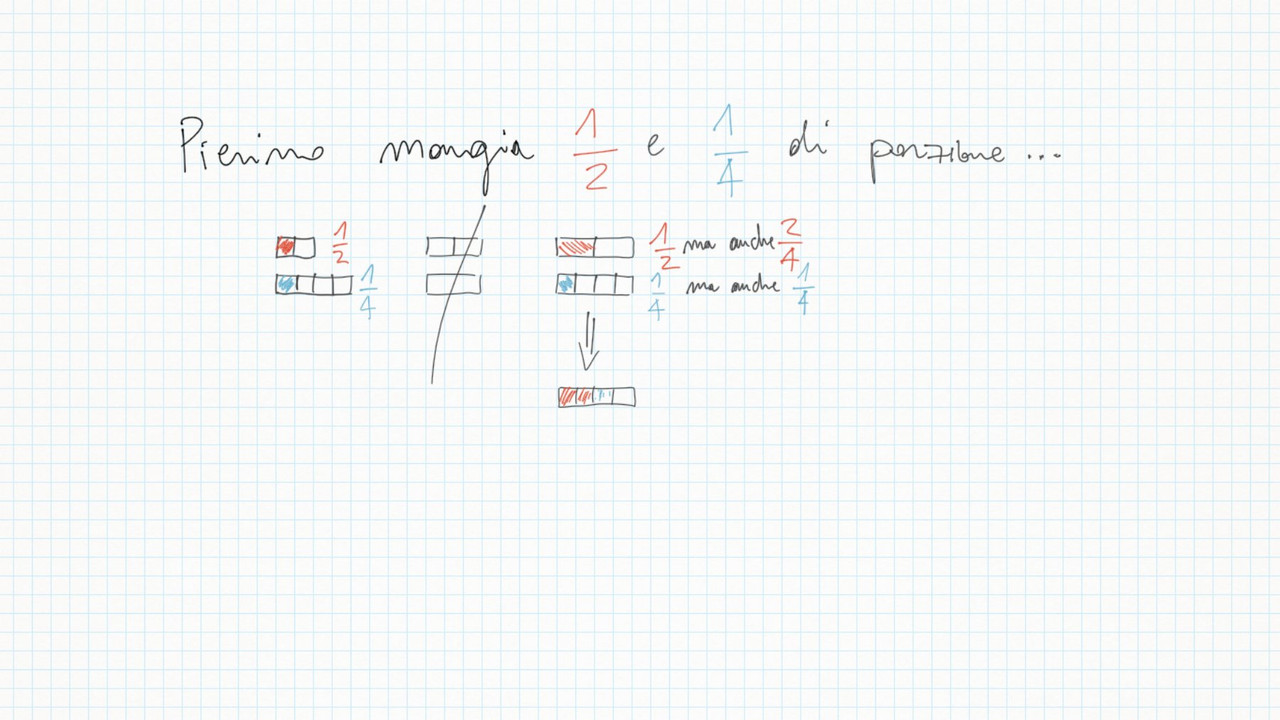 Pierino mangia 1/2 e 1/4 di porzione ...
1/2 1/2 ma anche 2/4
1/4 1/4 ma anche 1/4